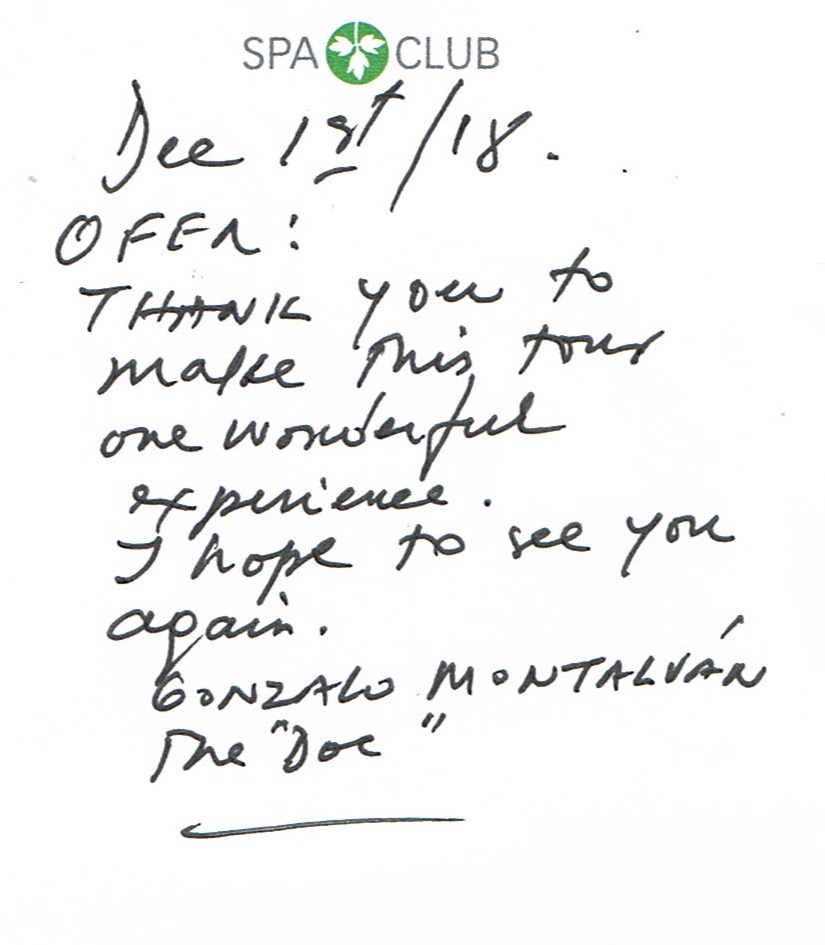 SPA CLUB
Dec 1st/18.
OFER:
THANK you to
make this tour
one wonderful
experience.
I hope to see you
again.
GONZALO MONTALVÁN
The "Doc"